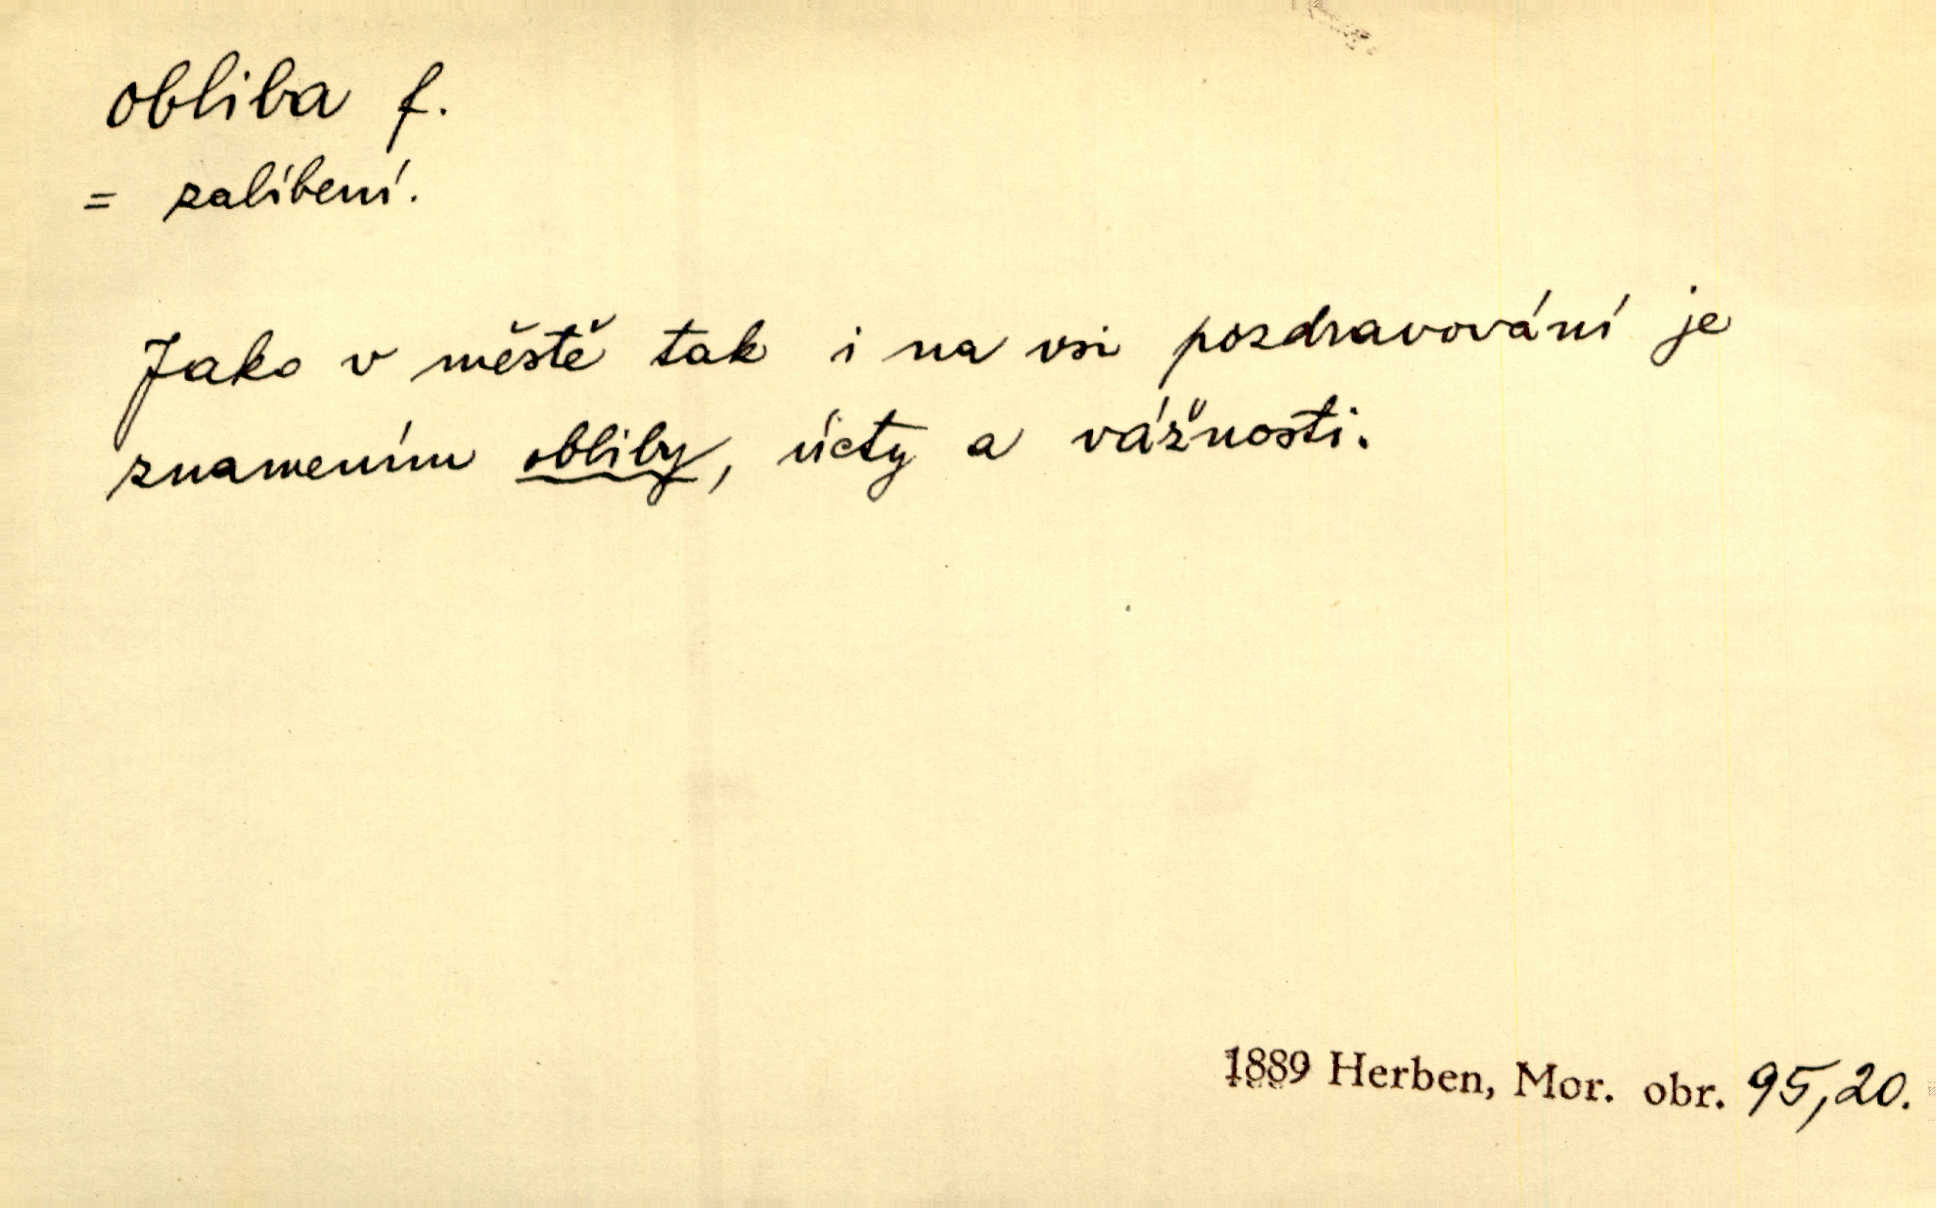 obliba f.
= zalíbení.
Jako v městě tak i na vsi pozdravování je
znamením obliby, úcty a vážnosti.
1889 Herben, Mor. obr. 95,20.